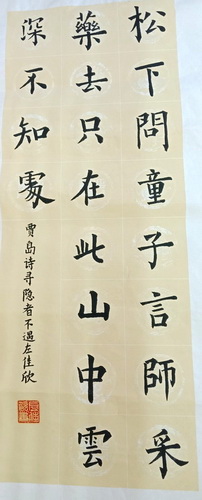 松下問童子言師采
藥去只在此山中雲
深不知處
賈岛诗寻隐者不遇左佳欣